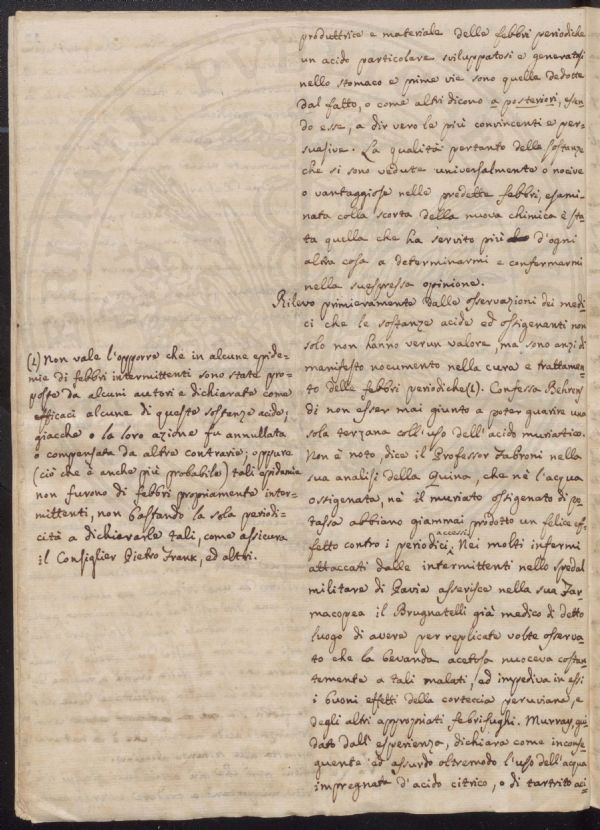 produttrice e materiale delle febbri periodiche
un acido particolare sviluppatosi e generatosi
nello stomaco e prime vie sono quelle dedotte
dal fatto, o come altri dicono a posteriori, esen-
do esse, a dir vero le più convincenti e per-
suasive. La qualità pertanto delle sostanze
che si sono vedute universalmente o nocive
o vantaggiose nelle predette febbri, esami-
nata colla scorta della nuova chimica è sta-
ta quella che ha servito più d'ogni
altra cosa a determinarmi e confermarmi
nella suespressa opinione.
Rilevo primieramente dalle osservazioni dei medi-
ci che le sostanze acide ed ossigenenti non
solo non hanno verun valore, ma sono anzi di
manifesto nocumento nella cura e trattamen-
to delle febbri periodiche (L). Confessa Behrens
di non esser mai giunto a poter guarire una
sola terzana coll'uso dell'acido muriatico.
Non è noto, dice il Professor Fabroni nella
sua analisi della Quina, che nè l'acqua
ossigenata, nè il muriato ossigenato di po-
tassa abbiano giammai prodotto un felice ef-
fetto contro i periodici accessi. Nei molti infermi
attaccati dalle intermittenti nello spedal
militare di Pavia asserisce nella sua Far-
macopea il Brugnatelli già medico di detto
luogo di avere per replicate volte osserva-
to che la bevanda acetosa nuoceva costan-
temente a tali malati, ed impediva in essi
i buoni effetti della corteccia peruviana, e
degli altri appropiati febrifughi. Murray gui-
dato dall'esperienza, dichiara come inconse-
guente ed assurdo oltremodo l'uso dell'acqua
impregnata d'acido citrico, o di tartrito aci-
(L) Non vale l'opporre che in alcune epide-
mie di febbri intermittenti sono state pro-
poste da alcuni autori e dichiarate come
efficaci alcune di queste sostanze acide;
giacchè o la loro azione fu annullata
o compensata da altre contrarie; oppure
(ciò che è anche più probabile) tali epidemie
non furono di febbri propriamente inter-
mittenti, non bastando la sola periodi-
cità a dichiararle tali, come assicura
il Consiglier Pietro Frank, ed altri.